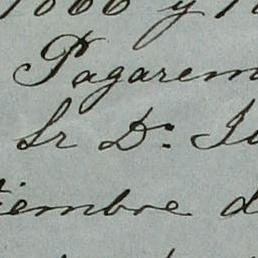 1866 y 1
Pagarem
Sr D: Ju
tiembre d